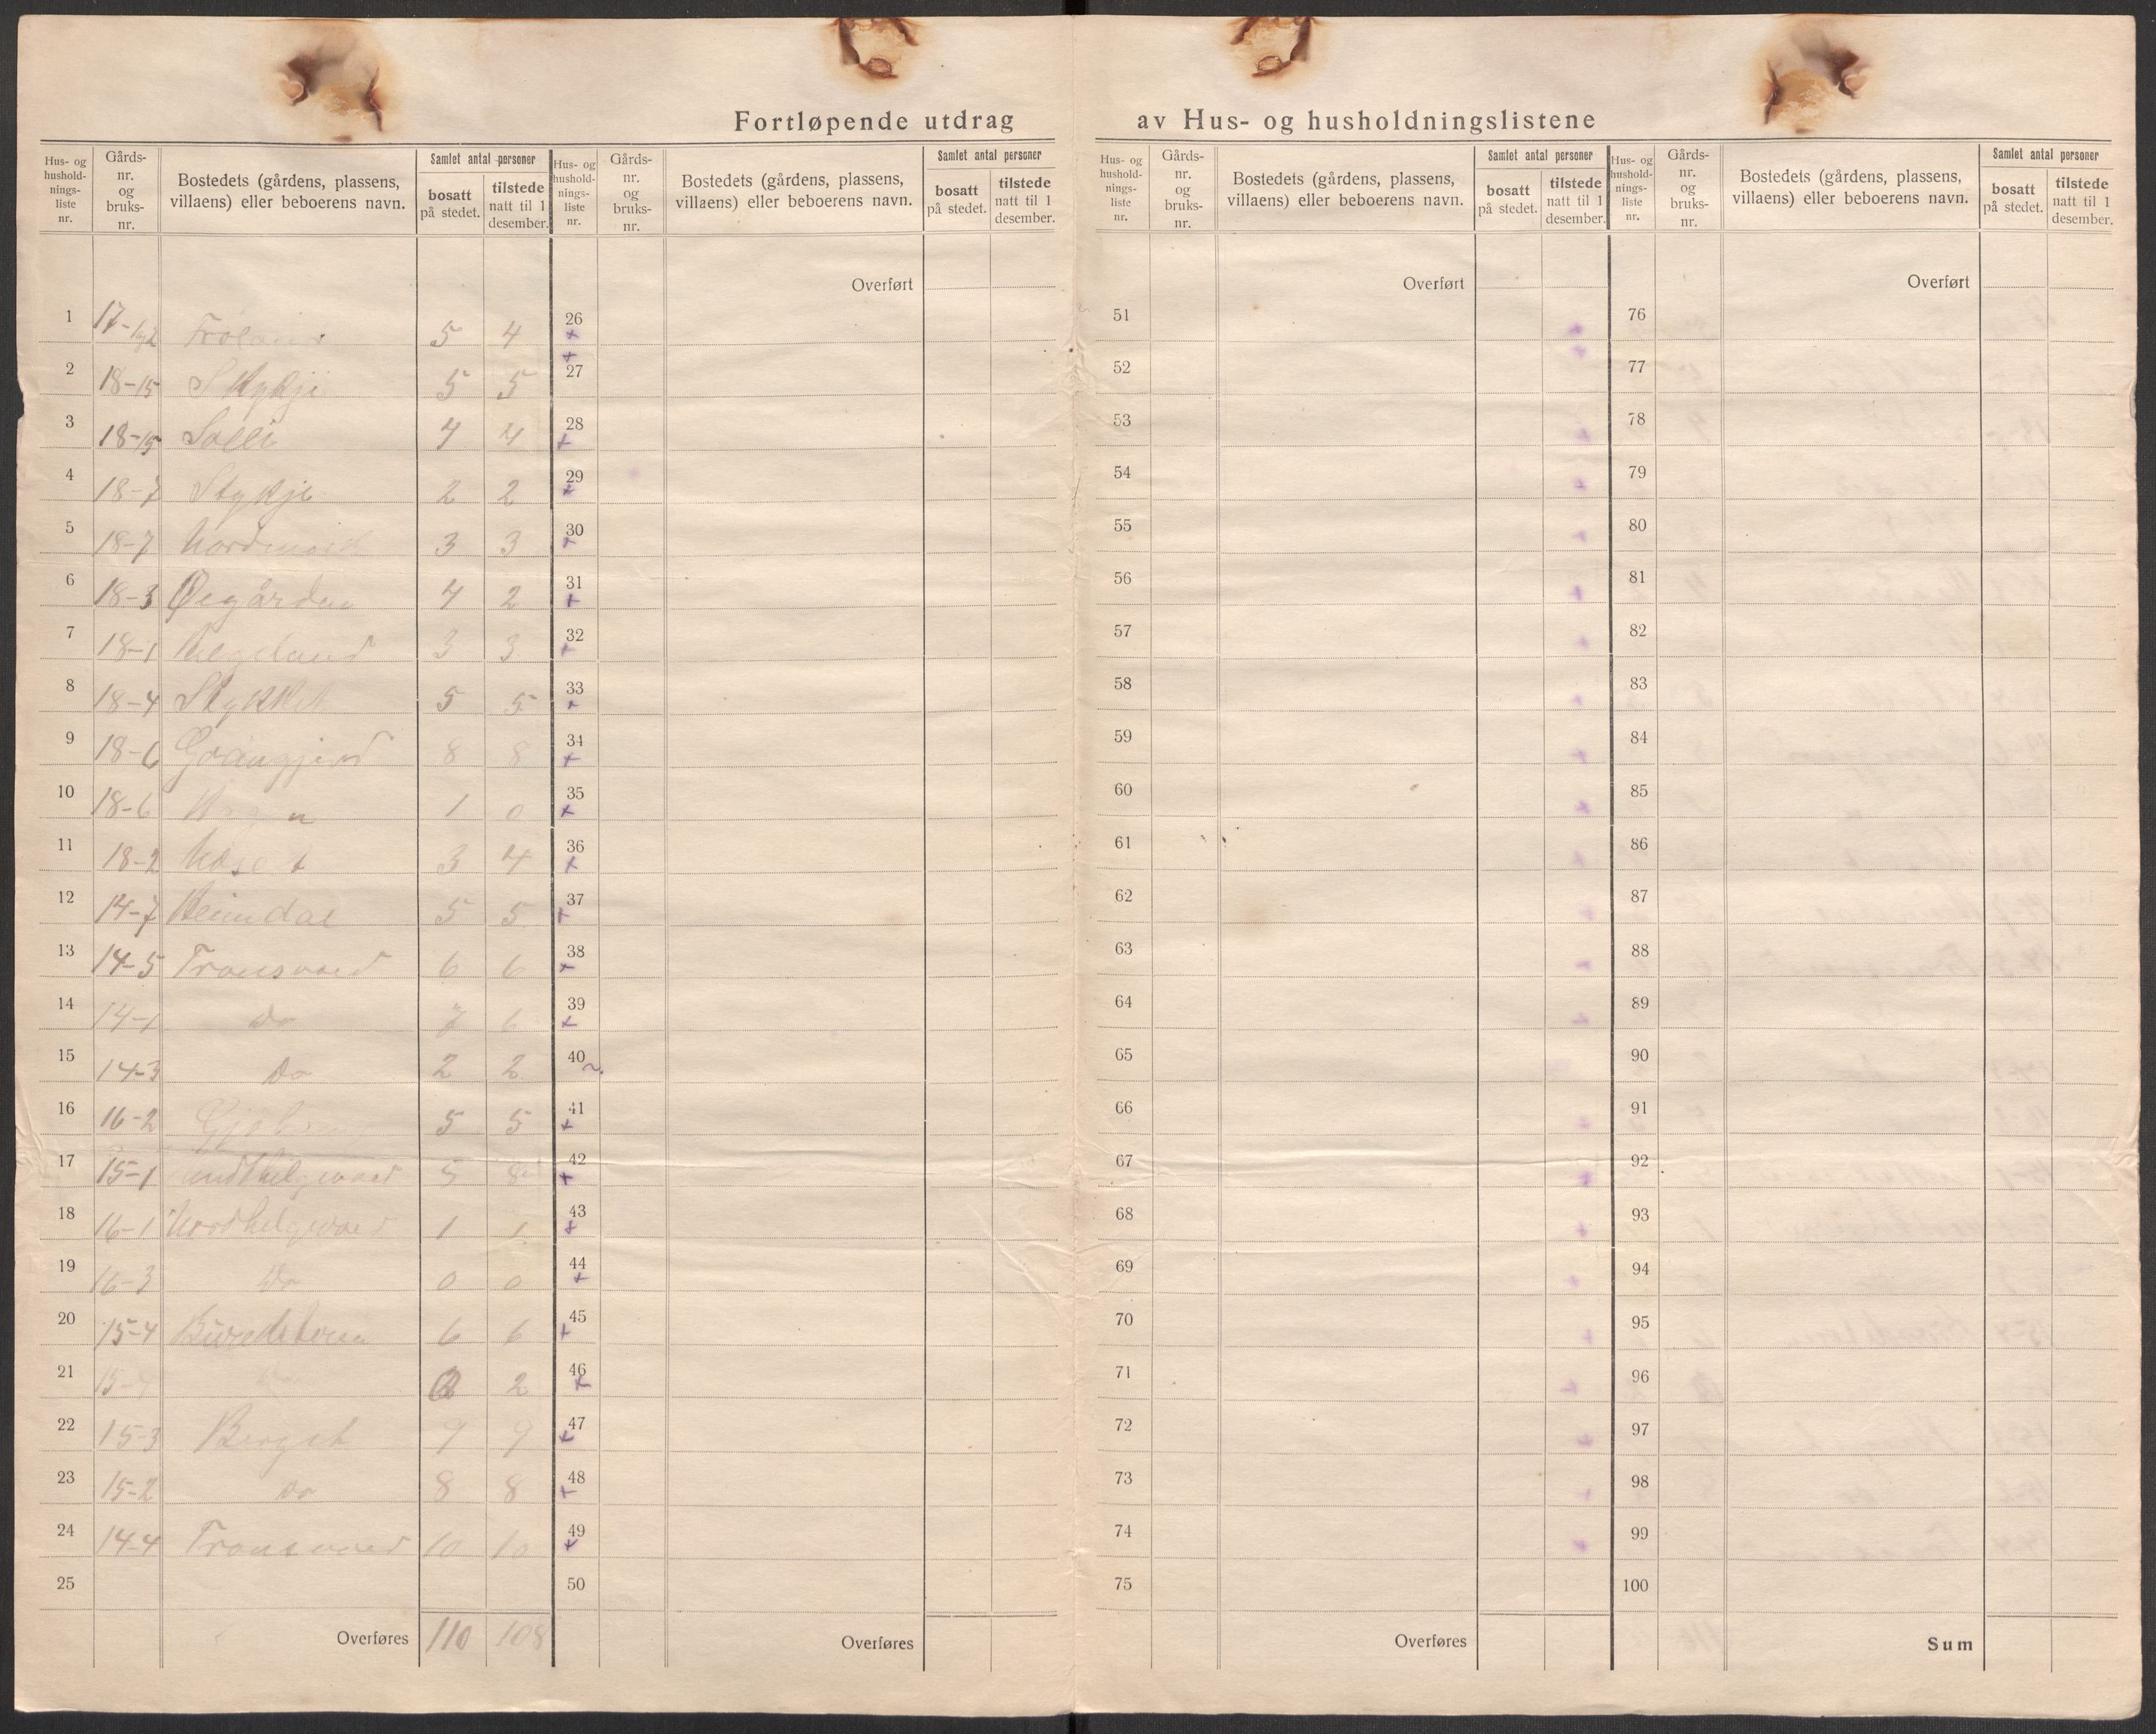 Fortløpende utdrag av Hus- og husholdningslistene
Hus- og hushold-nings-liste nr. Gårds-nr. og bruks-nr. Bostedets (gårdens, plassens, villaens) eller beboerens navn. Samlet antal personer bosatt på stedet. tilstede natt til 1 desember.
Hus- og hushold-nings-liste nr. Gårds-nr. og bruks-nr. Bostedets (gårdens, plassens, villaens) eller beboerens navn. Samlet antal personer bosatt på stedet. tilstede natt til 1 desember.
Hus- og hushold-nings-liste nr. Gårds-nr. og bruks-nr. Bostedets (gårdens, plassens, villaens) eller beboerens navn. Samlet antal personer bosatt på stedet. tilstede natt til 1 desember.
Hus- og hushold-nings-liste nr. Gårds-nr. og bruks-nr. Bostedets (gårdens, plassens, villaens) eller beboerens navn. Samlet antal personer bosatt på stedet. tilstede natt til 1 desember.
Overført Overført Overført
1 5 4 26 51 76
2 18-15 5 5 27 52 77
3 18-15 Solli 4 4 28 53 78
4 18-7 Stykje 2 2 29 54 79
5 18-7 3 3 30 55 80
6 18-3 Øegården 4 2 31 56 81
7 18-1 Helgeland 3 3 32 57 82
8 18-4 Stykket 5 5 33 58 83
9 18-6 8 8 34 59 84
10 18-6 1 0 35 60 85
11 18-2 Moset 3 4 36 61 86
12 14-7 Heimdal 5 5 37 62 87
13 14-5 Transvaed 6 6 38 63 88
14 14-1 Do 7 6 39 64 89
15 14-3 Do 2 2 40 65 90
16 16-2 5 5 41 66 91
17 15-1 5 8 42 67 92
18 16-1 1 1 43 68 93
19 16-3 Do 0 0 44 69 94
20 15-4 6 6 45 70 95
21 2 46 71 96
22 15-3 Berget 9 9 47 72 97
23 15-2 Do 8 8 48 73 98
24 14-4 Transvaed 10 10 49 74 99
25 50 75 100
Overføres 110 108 Overføres Overføres Sum